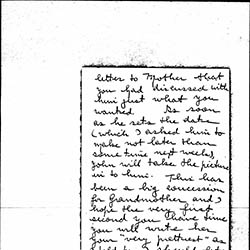 letter to Mother that
you had discussed with
him just what you
wanted. As soon
as he sets the date
(which I asked him to
make not later than
some time next week)
John will take the picture
in to him. This has
been a big concession
for Grandmother, and I
hope the very first
second you have time
you will write her
your very prettiest as